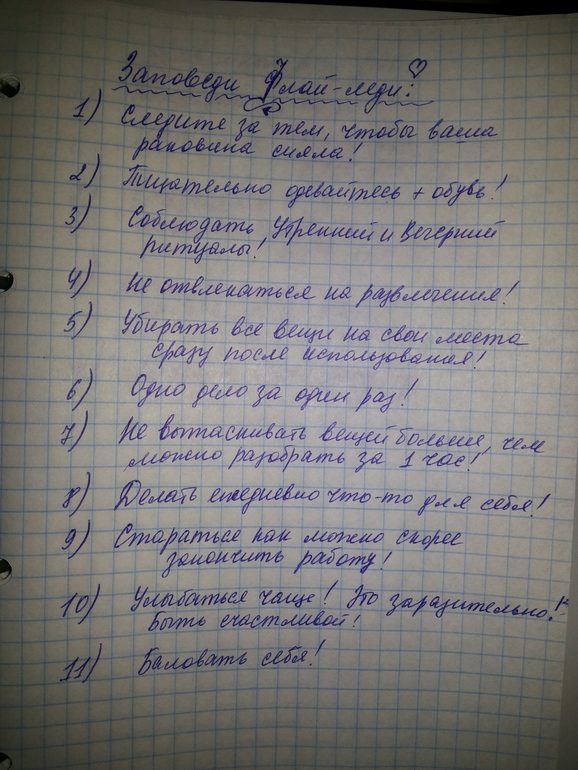 Заповеди Флай-леди:
1) Следите за тем, чтобы ваша
раковина сияла!
2) Тщательно одевайтесь + обувь!
3) Соблюдать Утренний и Вечерний
ритуалы!
4) Не отвлекаться на развлечения!
5) Убирать все вещи на свои места
сразу после использования!
6) Одно дело за один раз!
7) Не вытаскивать вещей больше, чем
можно разобрать за 1 час!
8) Делать ежедневно что-то для себя!
9) Стараться как можно скорее
закончить работу!
10) Улыбаться чаще! Это заразительно!
Быть счастливой!
11) Баловать себя!